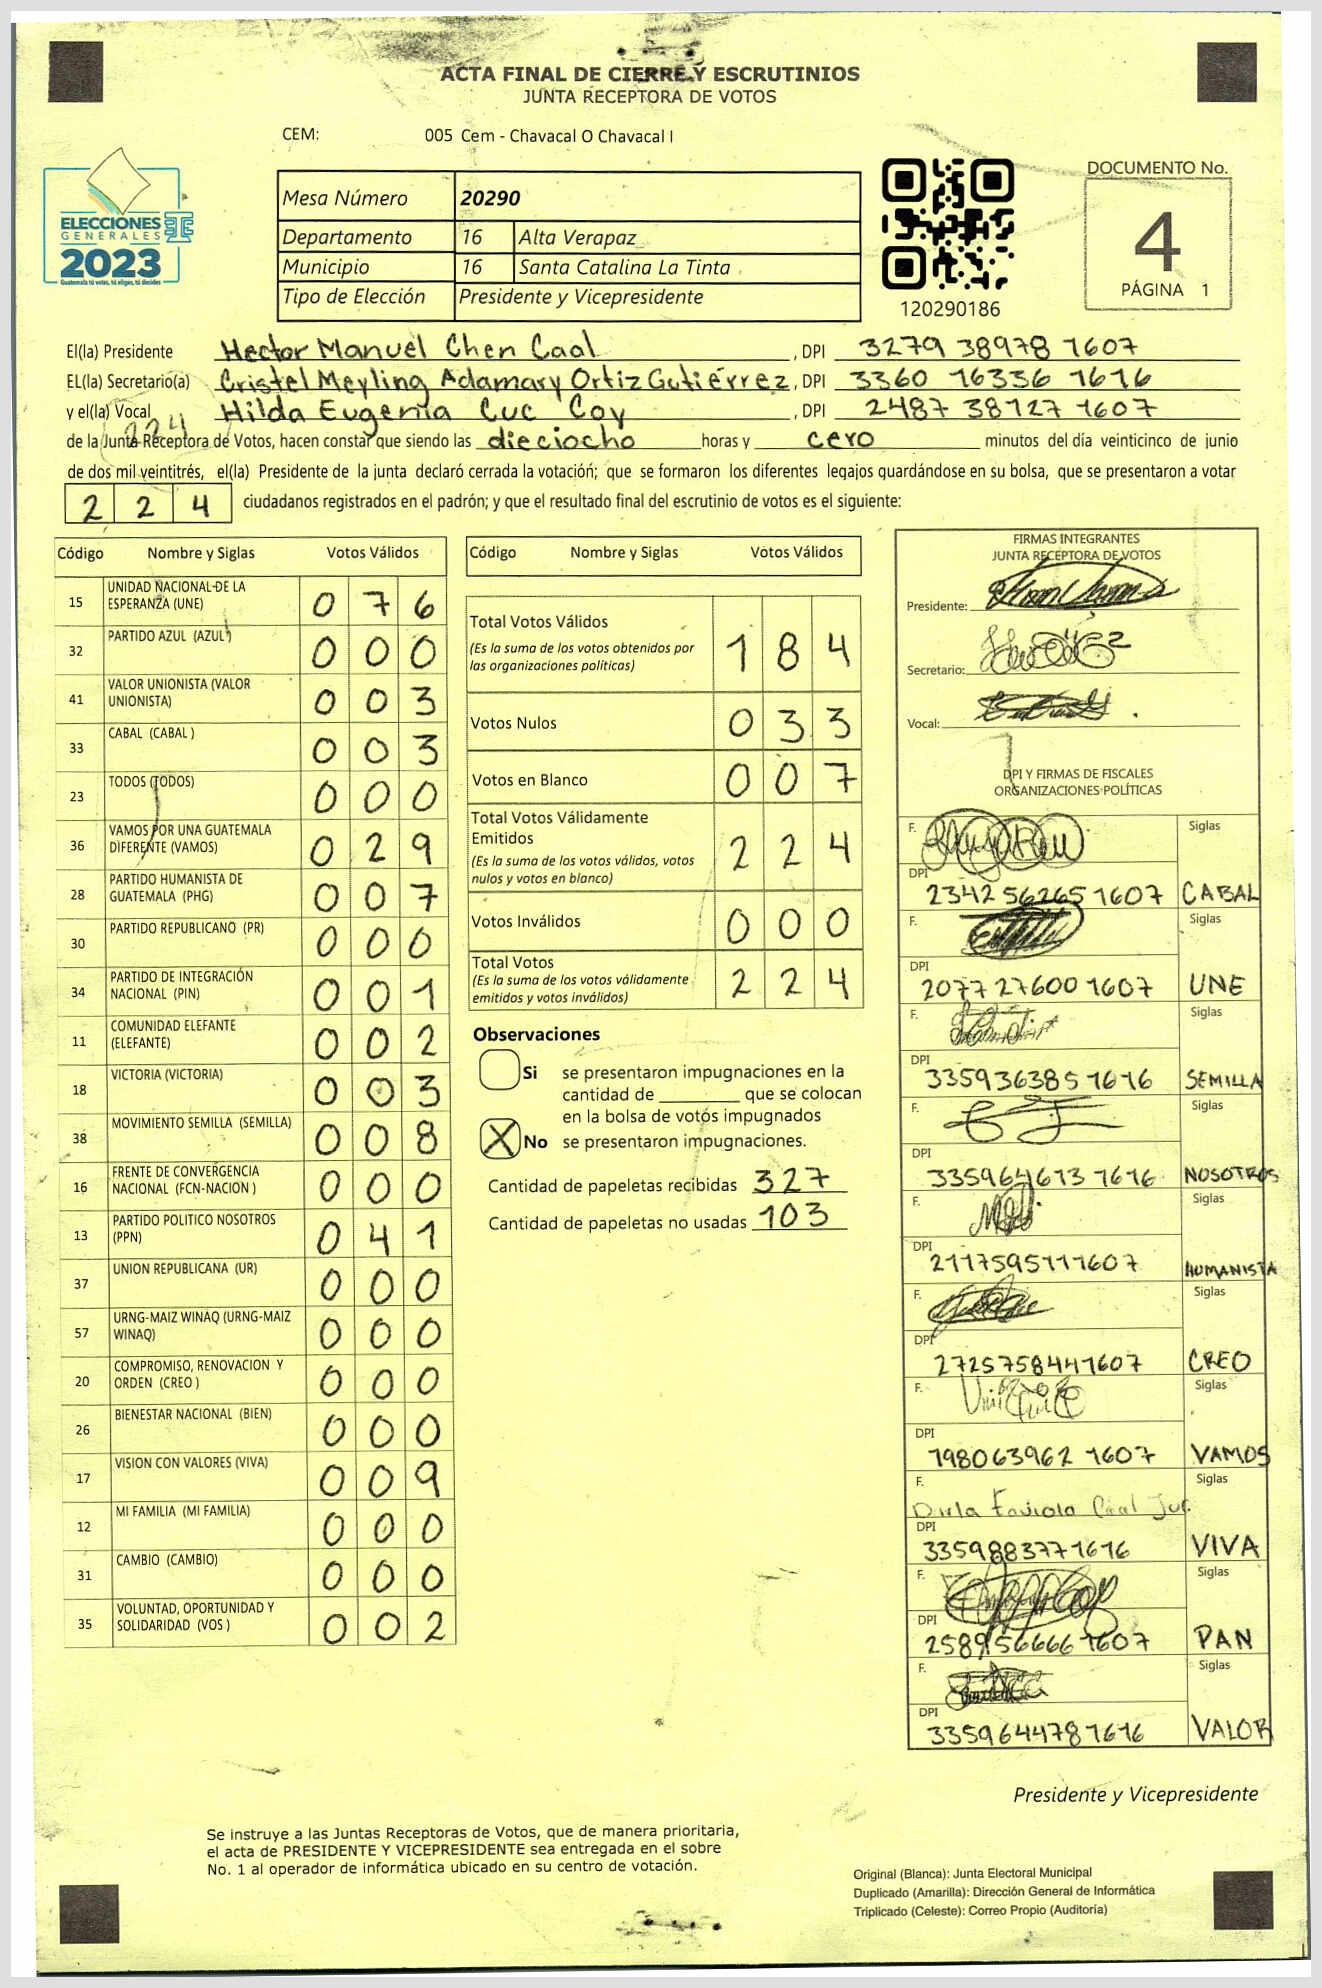 ACTA FINAL DE CIERRE Y ESCRUTINIOS
JUNTA RECEPTORA DE VOTOS
CEM: 005 Cem - Chavacal O Chavacal I
ELECCIONES
GENERALES
2023
Guatemala tú votas, tú eliges, tú decides
Mesa Número 20290
Departamento 16 Alta Verapaz
Municipio 16 Santa Catalina La Tinta
Tipo de Elección Presidente y Vicepresidente
120290186
DOCUMENTO No.
4
PÁGINA 1
El(la) Presidente Hector Manuel Chen Caal , DPI 3279 38978 1607
EL(la) Secretario(a) Cristel Meyling Adamary Ortiz Gutiérrez , DPI 3360 16336 1616
y el(la) Vocal Hilda Eugenia Cuc Coy , DPI 2487 38127 1607
224
de la Junta Receptora de Votos, hacen constar que siendo las dieciocho horas y cero minutos del día veinticinco de junio
de dos mil veintitrés, el(la) Presidente de la junta declaró cerrada la votación; que se formaron los diferentes legajos quardándose en su bolsa, que se presentaron a votar
2 2 4 ciudadanos registrados en el padrón; y que el resultado final del escrutinio de votos es el siguiente:
Código Nombre y Siglas Votos Válidos
15 UNIDAD NACIONAL DE LA ESPERANZA (UNE) 0 7 6
32 PARTIDO AZUL (AZUL) 0 0 0
41 VALOR UNIONISTA (VALOR UNIONISTA) 0 0 3
33 CABAL (CABAL ) 0 0 3
23 TODOS (TODOS) 0 0 0
36 VAMOS POR UNA GUATEMALA DIFERENTE (VAMOS) 0 2 9
28 PARTIDO HUMANISTA DE GUATEMALA (PHG) 0 0 7
30 PARTIDO REPUBLICANO (PR) 0 0 0
34 PARTIDO DE INTEGRACIÓN NACIONAL (PIN) 0 0 1
11 COMUNIDAD ELEFANTE (ELEFANTE) 0 0 2
18 VICTORIA (VICTORIA) 0 0 3
38 MOVIMIENTO SEMILLA (SEMILLA) 0 0 8
16 FRENTE DE CONVERGENCIA NACIONAL (FCN-NACION ) 0 0 0
13 PARTIDO POLITICO NOSOTROS (PPN) 0 4 1
37 UNION REPUBLICANA (UR) 0 0 0
57 URNG-MAIZ WINAQ (URNG-MAIZ WINAQ) 0 0 0
20 COMPROMISO, RENOVACION Y ORDEN (CREO ) 0 0 0
26 BIENESTAR NACIONAL (BIEN) 0 0 0
17 VISION CON VALORES (VIVA) 0 0 9
12 MI FAMILIA (MI FAMILIA) 0 0 0
31 CAMBIO (CAMBIO) 0 0 0
35 VOLUNTAD, OPORTUNIDAD Y SOLIDARIDAD (VOS ) 0 0 2
Código Nombre y Siglas Votos Válidos
Total Votos Válidos 1 8 4
(Es la suma de los votos obtenidos por
las organizaciones políticas)
Votos Nulos 0 3 3
Votos en Blanco 0 0 7
Total Votos Válidamente
Emitidos 2 2 4
(Es la suma de los votos válidos, votos
nulos y votos en blanco)
Votos Inválidos 0 0 0
Total Votos 2 2 4
(Es la suma de los votos válidamente
emitidos y votos inválidos)
Observaciones
Si se presentaron impugnaciones en la
cantidad de ________ que se colocan
en la bolsa de votos impugnados
X No se presentaron impugnaciones.
Cantidad de papeletas recibidas 327
Cantidad de papeletas no usadas 103
FIRMAS INTEGRANTES
JUNTA RECEPTORA DE VOTOS
Presidente:
Secretario:
Vocal:
DPI Y FIRMAS DE FISCALES
ORGANIZACIONES POLÍTICAS
F. Siglas
DPI 2342 56265 1607 CABAL
F. Siglas
DPI 2077 27600 1607 UNE
F. Siglas
DPI 335936385 1616 SEMILLA
F. Siglas
DPI 335964613 1616 NOSOTROS
F. Siglas
DPI 2117595111607 HUMANISTA
F. Siglas
DPI 2725758441607 CREO
F. Siglas
DPI 198063962 1607 VAMOS
F. Siglas
DPI 3359883771616 VIVA
F. Siglas
DPI 258956666 1607 PAN
F. Siglas
DPI 3359644781616 VALOR
Presidente y Vicepresidente
Se instruye a las Juntas Receptoras de Votos, que de manera prioritaria,
el acta de PRESIDENTE Y VICEPRESIDENTE sea entregada en el sobre
No. 1 al operador de informática ubicado en su centro de votación.
Original (Blanca): Junta Electoral Municipal
Duplicado (Amarilla): Dirección General de Informática
Triplicado (Celeste): Correo Propio (Auditoría)